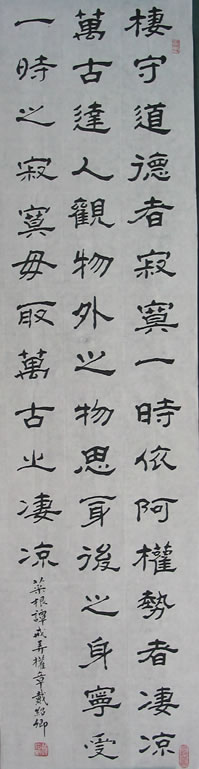 棲守道德者寂寞一時依阿權勢者凄涼
萬古達人觀物外之物思身後之身寧受
一時之寂寞毋取萬古之凄涼
菜根譚戒弄權章戴紹卿